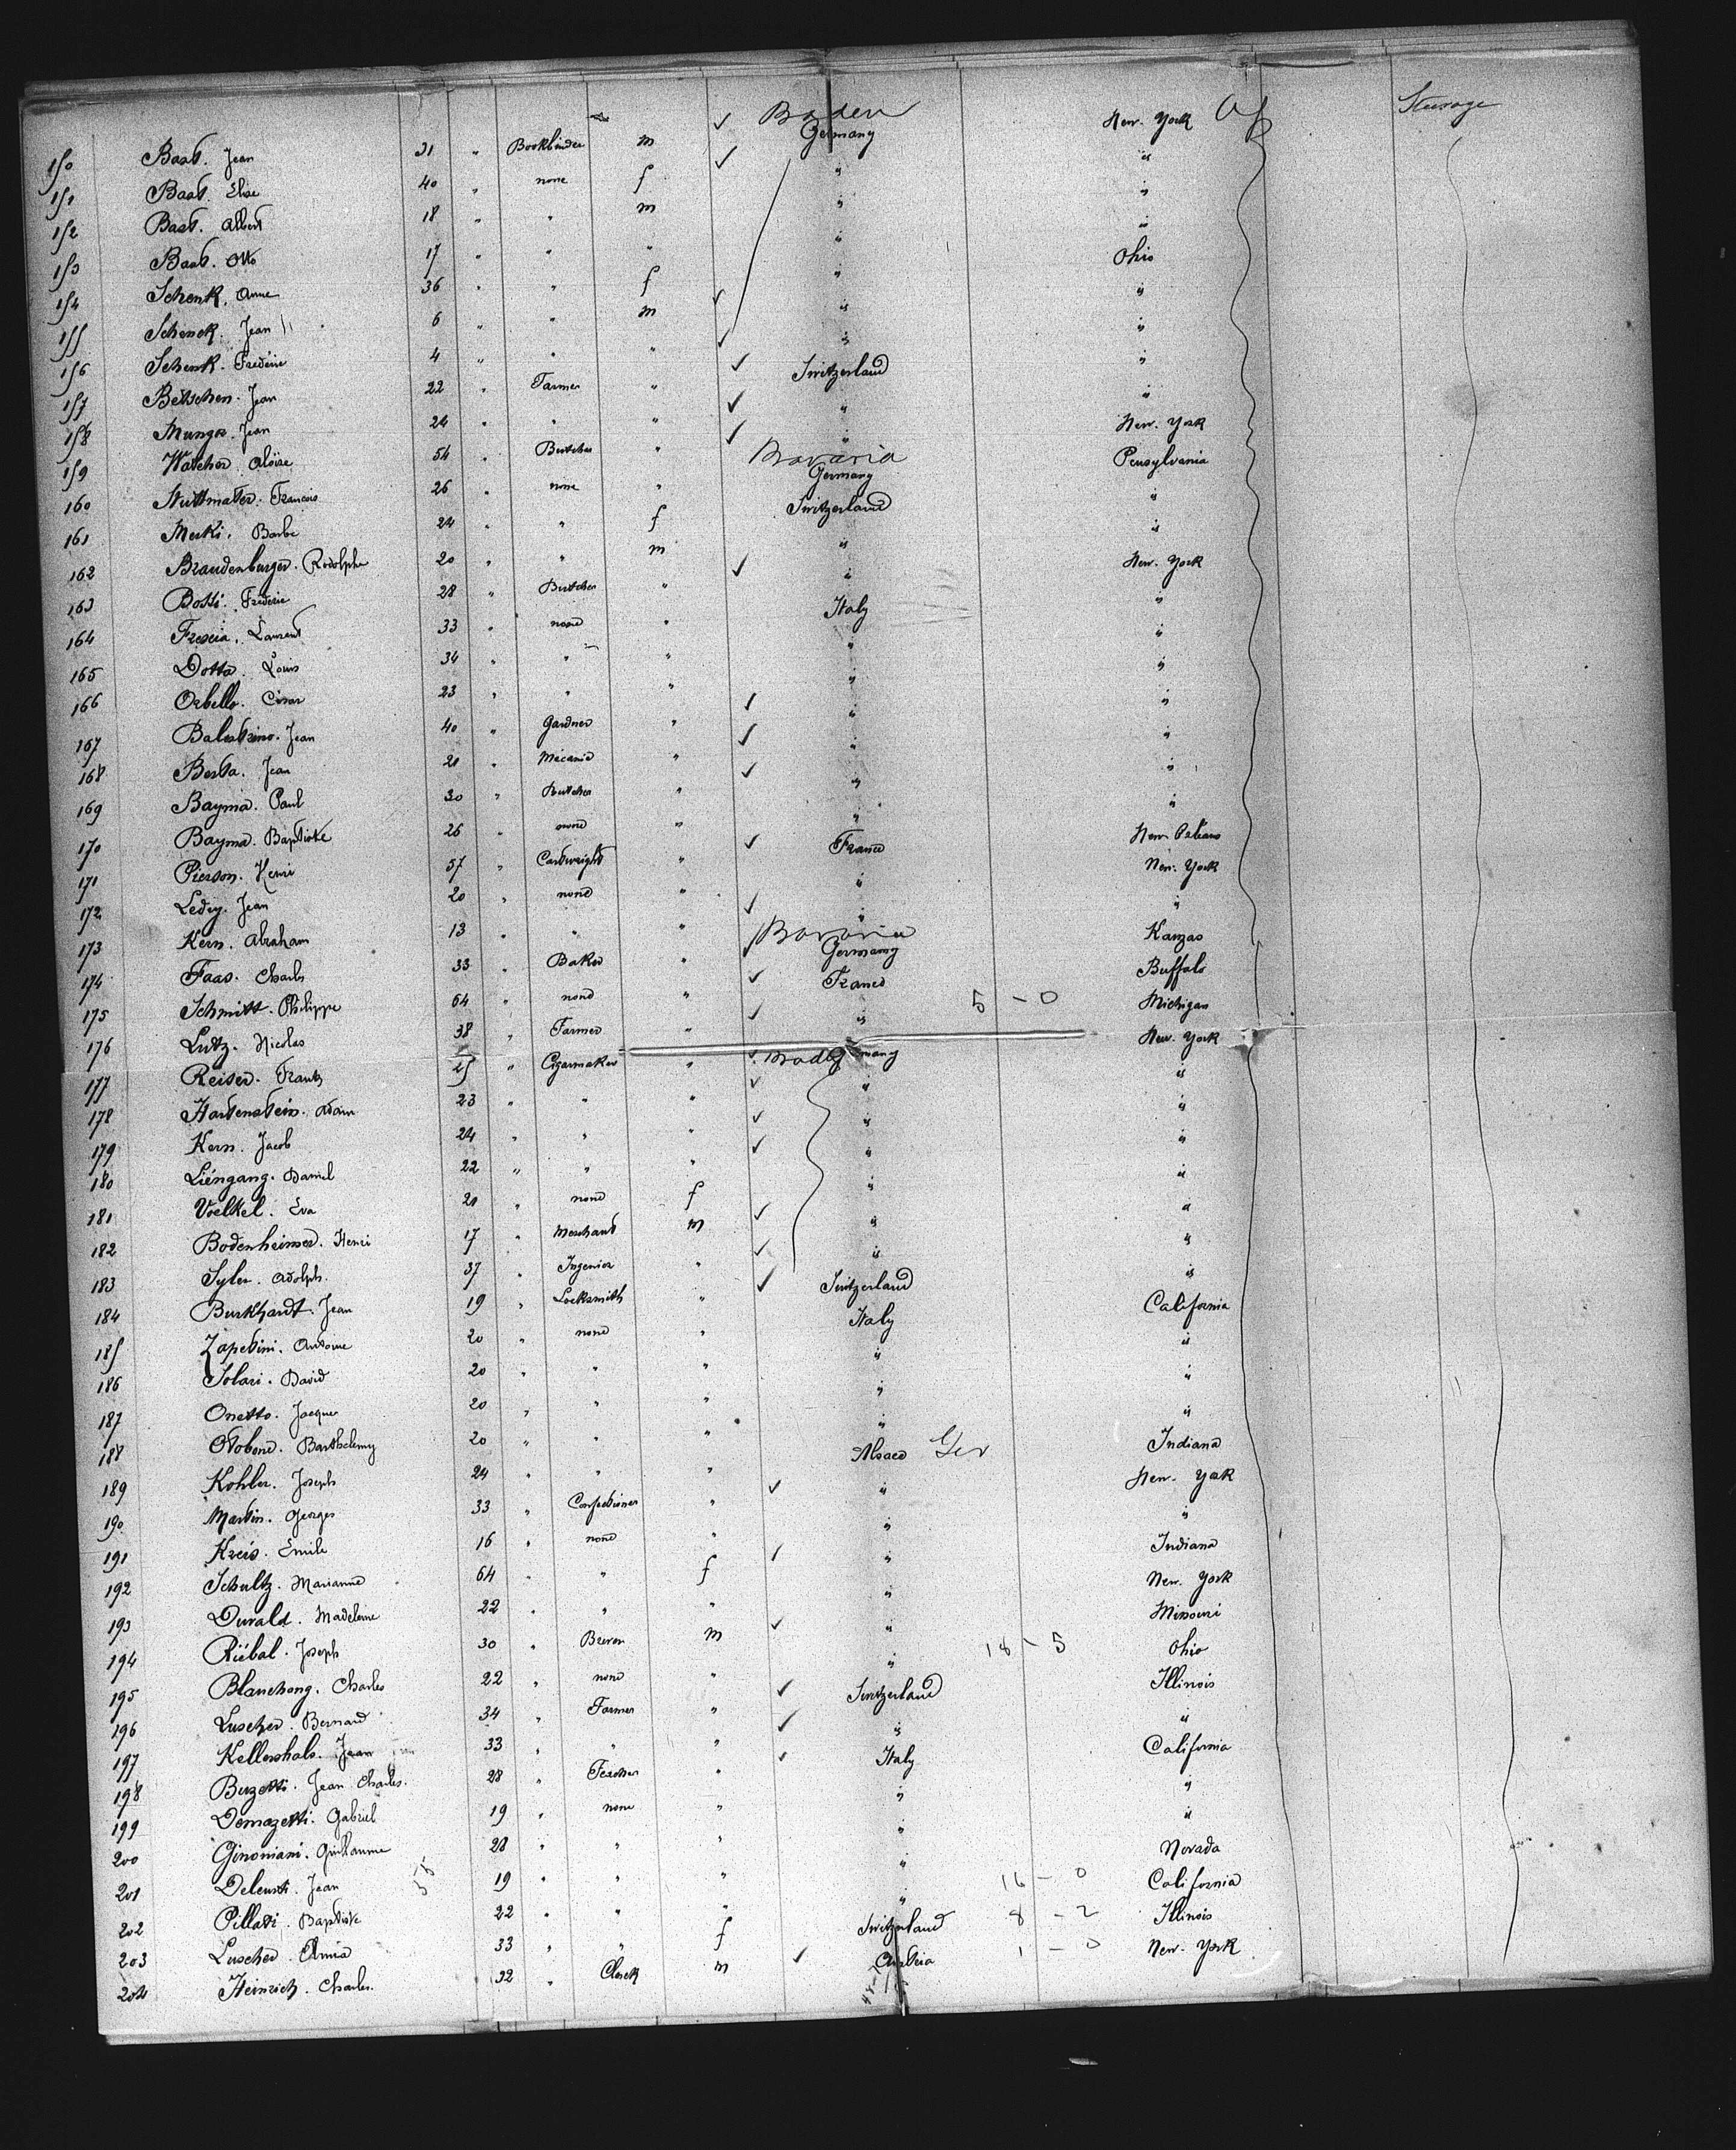 Baden Af Steerage
150 Bast. Jean 31 " Bookbinder m ✓ Germany New. York
151 Bast. Elise 40 " none f ✓ " "
152 Bast. Albert 18 " " m " "
153 Bast. Otto 17 " " " " "
154 Schenk. Anne 36 " " f " Ohio
155 Schenck. Jean 6 " " m ✓ " "
156 Schenk. Frederic 4 " " " ✓ " "
157 Betschen. Jean 22 " Farmer " ✓ Switzerland "
158 Munger. Jean 24 " " " ✓ " "
159 Watcher. Aloïse 54 " Butcher " ✓ " New. York
Bavaria
160 Stuttmater. Francois 26 " none " Germany Pensylvania
161 Merki. Barbe 24 " " f Switzerland "
162 Brandenburger. Rodolphe 20 " " m " "
163 Bossi. Frederic 28 " Butcher " ✓ " New. York
164 Frescia. Laurent 33 " none " Italy "
165 Dotta. Louis 34 " " " " "
166 Orbello. Cesar 23 " " " " "
167 Balestrino. Jean 40 " Gardner " ✓ " "
168 Berta. Jean 21 " Mecanic " ✓ " "
169 Bayma. Paul 30 " Butcher " ✓ " "
170 Bayma. Baptiste 26 " none " " "
171 Pierson. Henri 57 " Cartwright " ✓ France New Orleans
172 Ledey. Jean 20 " none " " New. York
173 Kern. Abraham 13 " " " ✓ " "
Bavaria
174 Faas. Charles 33 " Baker " ✓ Germany Kanzas
175 Schmitt. Philippe 64 " none " ✓ France Buffalo
176 Lutz. Nicolas 38 " Farmer " ✓ " 5 - 0 Michigan
177 Reiser. Frantz 25 " Cigarmaker " ✓ Baden Germany New. York
178 Hartenstein. Adam 23 " " " ✓ " "
179 Kern. Jacob 24 " " " ✓ " "
180 Liéngang. Daniel 22 " " " ✓ " "
181 Voelkel. Eva 21 " none f " "
182 Bodenheimer. Henri 17 " Merchant m ✓ " "
183 Syler. Adolph. 37 " Ingenior " ✓ " "
184 Burkhardt. Jean 19 " Locksmith " ✓ Switzerland "
185 Zapetini. Antoine 20 " none " Italy California
186 Solari. David 20 " " " " "
187 Onetto. Jacques 20 " " " " "
188 Otobone. Barthelemy 20 " " " " "
189 Kohler. Joseph 24 " " " Alsace Ger Indiana
190 Martin. Georges 33 " Confectioner " ✓ " New. York
191 Kreis. Emile 16 " none " " "
192 Schultz. Marianne 64 " " f ✓ " Indiana
193 Durald. Madeleine 22 " " " " New. York
194 Riébal. Joseph 30 " Brever m ✓ " Missouri
195 Blanchong. Charles 22 " none " " 18 - 5 Ohio
196 Luscher. Bernard 34 " Farmer " ✓ Switzerland Illinois
197 Kellershals. Jean 33 " " " ✓ " "
198 Buzetti. Jean Charles. 28 " Teacher " ✓ Italy California
199 Domazetti. Gabriel 19 " none " " "
200 Ginoniani. Guillaume 28 " " " " "
201 Deleusti. Jean 55 19 " " " " Nevada
202 Pillati. Baptiste 22 " " " " 16 - 0 California
203 Luscher. Elmia 33 " " f Switzerland 8 - 2 Illinois
204 Heinrich. Charles. 32 " Clerck m ✓ Austria 1 - 0 New. York